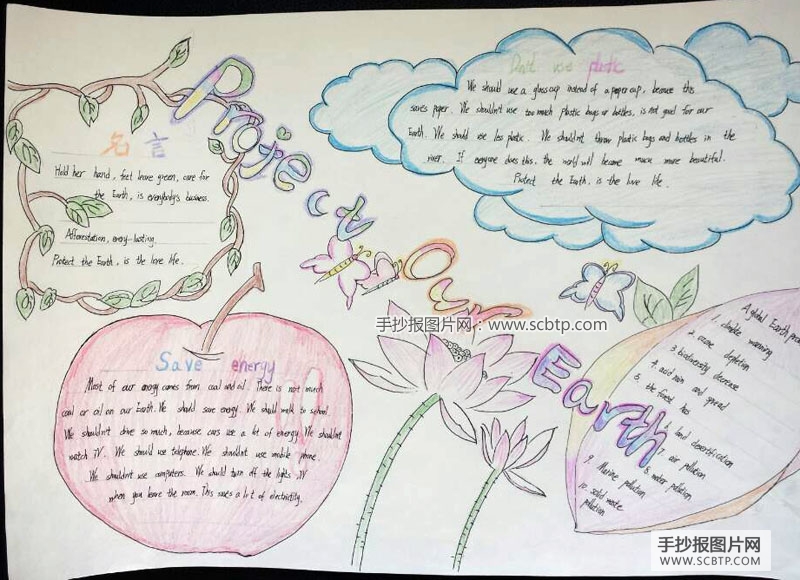 Project
Our
Earth
名言
Hold her hand, feet leave green, care for
the Earth, is everybody's business.
Afforestation, every-lasting
Protect the Earth, is the love life.
Don't use plastic
We should use a glass cup instead of a paper cup, because this
saves paper. We shouldn't use too much plastic bags or bottles, is not good for our
Earth. We should use less plastic. We shouldn't throw plastic bags and bottles in the
river. If everyone does this, the world will become much more beautiful.
Protect the Earth, is the love life.
Save energy
Most of our energy comes from coal and oil. There is not much
coal or oil on our Earth. We should save energy. We should walk to school
We shouldn't drive so much, because cars use a lot of energy. We shouldn't
watch TV. We should use telephone. We shouldn't use mobile phone.
We shouldn't use computers. We should turn off the lights, TV
when you leave the room. This saves a lot of electricity.
A global Earth
1. climate warming
2. ozone depletion
3. biodiversity decrease
4. acid rain and spread
5. the forest has
6. land desertification
7. air pollution
8. water pollution
9. Marine pollution
10. solid waste
pollution
手抄报图片网：www.scbtp.com
手抄报图片网
WWW.SCBTP.COM